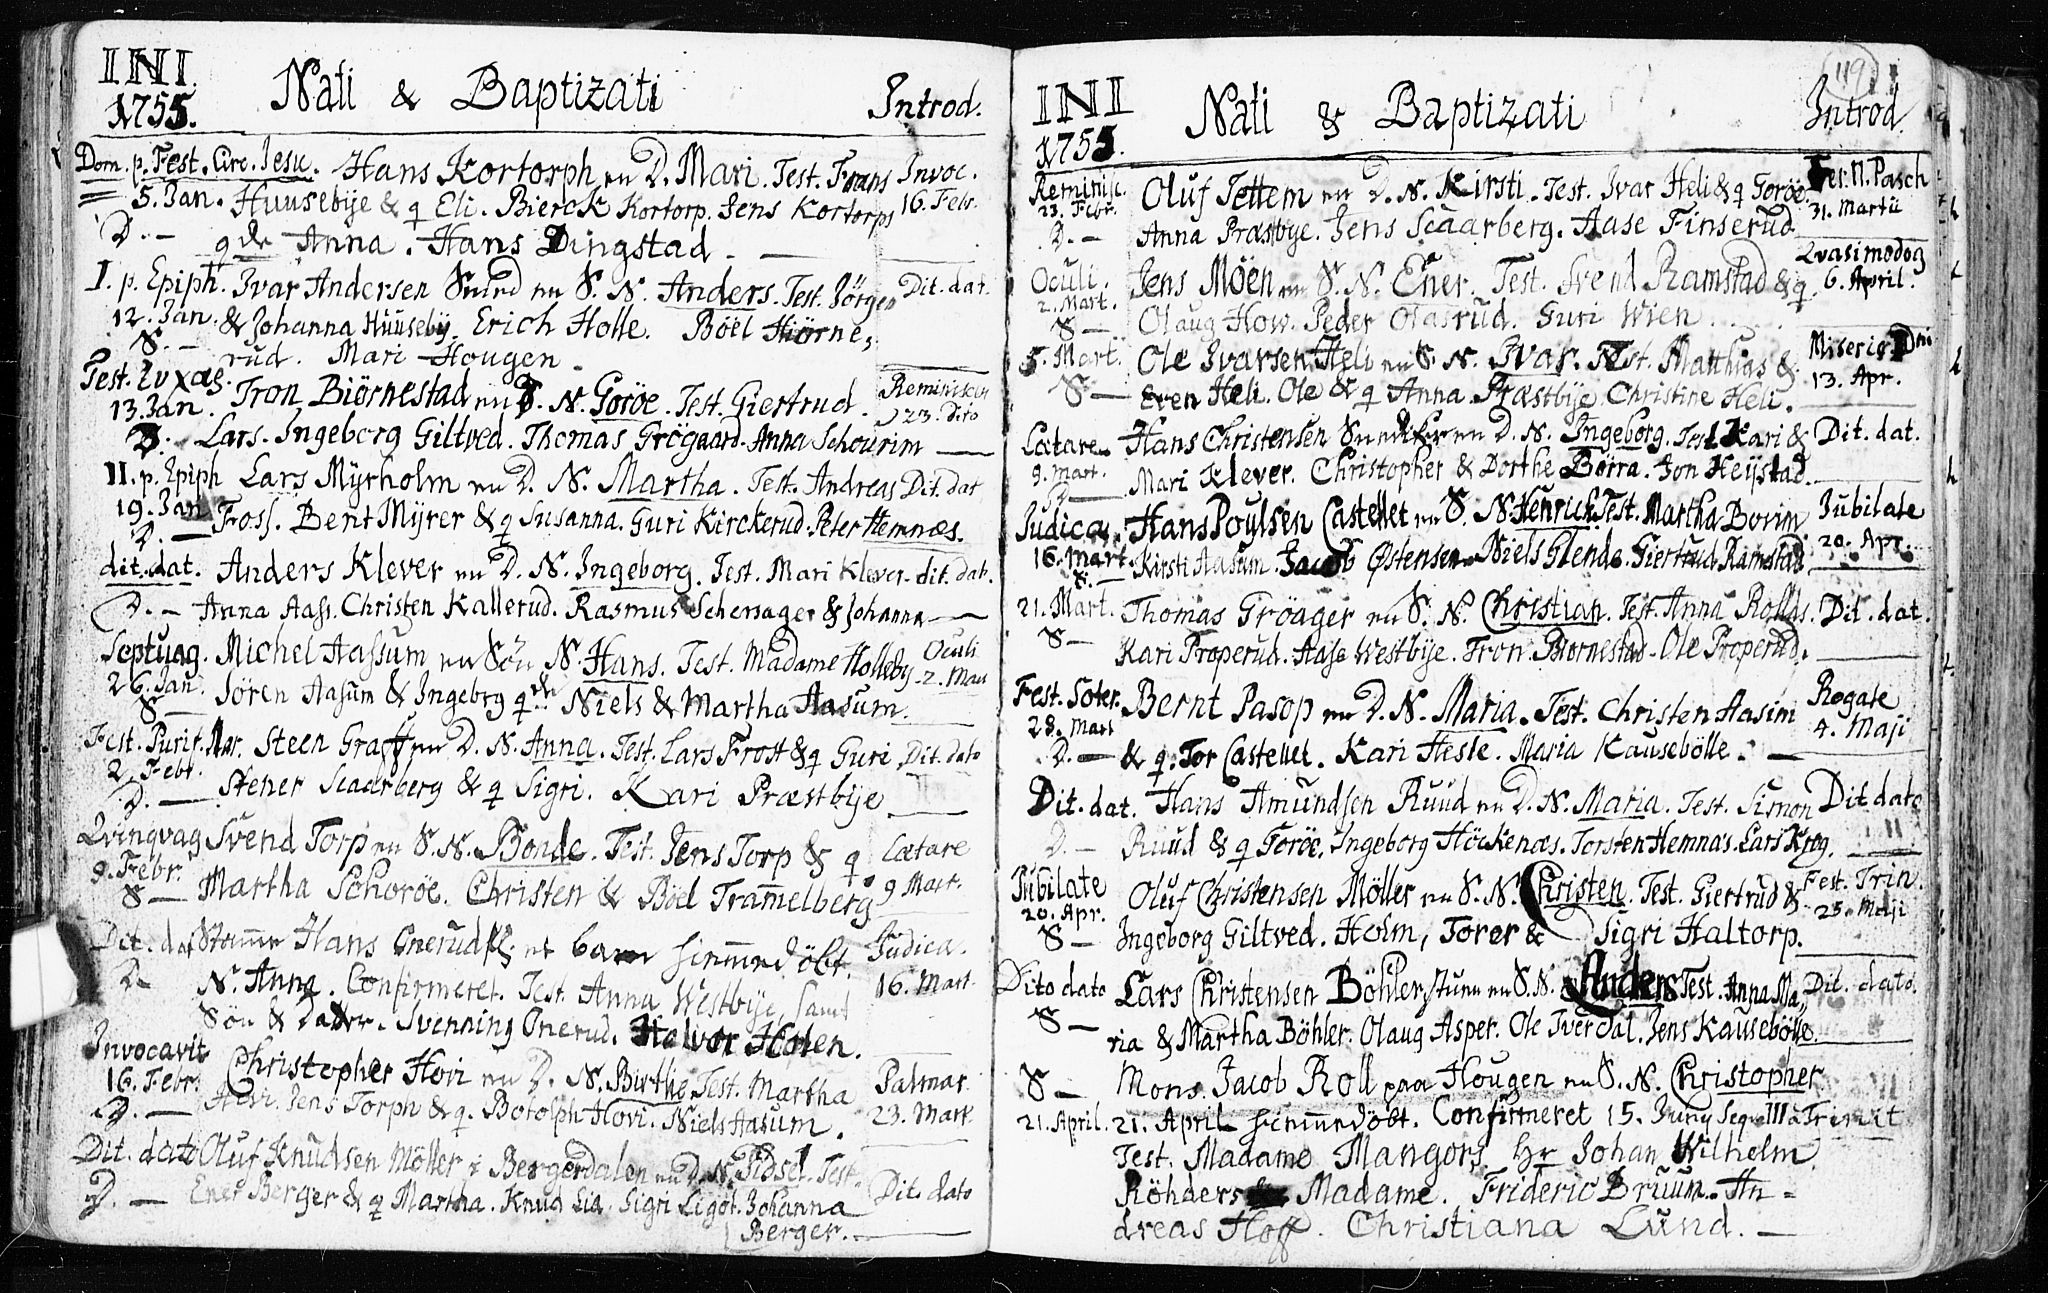 INI
1755. Nati & Baptizati Introd.
Dom. p. Fest. Circ. Jesu. Hans Kortorph en D. Mari. Test. Frans Invoc.
5. Jan. Huusebije & q Eli. Bierck Kortorp. Jens Kortorps 16. Febr.
D. - qde Anna. Hans Dingstad.
I. p. Epiph. Ivar Andersen Sund en S. N. Anders. Test. Jørgen Dit. dat.
12. Jan. & Johanna Huuseby. Erich Holle. Böel Hiörne,
S. - rud. Mari Hougen
Fest.
13. Jan. Tron Biörnestad en D. N. Goröe. Test. Giertrud. Reminiscer
23. Dito
D. Lars. Ingeborg Giltved. Thomas Grögaard. Anna Schourim
II. p. Epiph Lars Myrholm en D. N. Martha. Test. Andreas Dit. dat
19. Jan Foss. Bent Mÿrer & q Susanna. Guri Kirckerud. Peter Hemnæs.
D. -
dit. dat. Anders Klever en D. N. Ingeborg. Test. Mari Klever. dit. dat.
D. - Anna Aass. Christen Kallerud. Rasmus Schersager & Johanna
Septuag. Michel Aassum en Sön N. Hans. Test. Madame Holleby. Oculi
26. Jan. Jören Aasum & Ingeborg qde Niels & Martha Aasum. 2. Mart
S -
Fest. Purif. Mar. Steen Graff en D. N. Anna. Test. Lars Frost & q Guri Dit. dato
2. Febr.
D. - Stener Scaarberg & q Sigri. Kari Præstbije
Qvinqvag Svend Torp en S. N. Bonde. Test. Jens Torp & q Lætare
9. Febr.
S - Martha Schoröe. Christen & Böel Tramelberg 9 Mart.
Dit. dat Hans Onerud et barn hiemmedöbt. Judica.
D. - N. Anna. Confirmeret. Test. Anna Westbije, samt 16. Mart.
Sön & Datter. Svenning Onerud. Halvor Holen.
Invocavit Christopher Hovi en D. N. Birthe. Test. Martha Palmar.
16. Febr. Hovi. Jens Torph & q. Botolph Hovi. Niels Aasum. 23. Mart
D. -
Dit. dato Oluf Knudsen Möller i Bergerdalen en D. N. Sidsel. Test.
D. - Ener Berger & q Martha. Knud Lia. Sigri Ligot. Johanna Dit. dato
Berger.
119
INI
1755. Nati & Baptizati Introd.
Reminisc. Oluf Tettem en D. N. Kirsti. Test. Ivar Heli & q Goröe Fer. II. Pasch
23. Febr. 31. Martii
D. - Anna Præstbye. Jens Scaarberg. Aase Finserud
Oculi. Jens Möen en S. N. Ener. Test. Svend Ramstad & q Qvasimodog
2. Mart. 6. April.
S - Olaug How. Peder Olasrud. Guri Wien
5. Mart. Ole Ivarsen Heli en S. N. Ivar. Test. Matthias & Miseric. Dni
S - Even Heli. Ole & q Anna Præstbije Christine Heli. 13. Apr.
Lætare Hans Christensen en D. N. Ingeborg. Test. Kari & Dit. dat.
9. Mart.
D - Mari Klever. Christopher & Dorthe Börra. Jon Heijstad.
Judica. Hans Poulsen Castellet en S. N. Henrich. Test. Martha Bovim Jubilate
16. Mart. Kirsti Aasum. Jacob Østensen. Niels Glende. Giertrud Ramstad 20. Apr.
S. -
21. Mart. Thomas Gröager en S. N. Christian. Test. Anna Rollds. Dit. dat.
S - Kari Properud. Aase Westbije. Tron Biornestad. Ole Properud.
Fest. Soter. Bernt Pasop en D. N. Maria. Test. Christen Aasim Rogate
28. Mart 4. Maji
D. - & q. Tor Castellet. Kari Hesle. Maria Kausebölle.
Dit. dat. Hans Amundsen Ruud en D. N. Maria. Test. Simon Dit dato
D. - Ruud & q Goröe. Ingeborg Höckenæs. Torsten Hemnæs. Lars Krog.
Jubilate Oluf Christensen Möller en S. N. Christen. Test. Giertrud & Fest. Trin.
20. Apr. 25. Maji
S - Ingeborg Giltved. Holm, Torer & Sigri Haltorp.
Dito dato Lars Christensen Böhlerstuen en S. N. Anders Test. Anna Ma, Dit. dato.
S - ria & Martha Böhler. Olaug Asper. Ole Iverdal. Jens Kausebölle.
S - Mons. Jacob Roll paa Hougen en S. N. Christopher
21. April. 21. April hiemmedöbt. Confirmeret 15. Junij Seqv. III a Trinit
Test. Madame Mangors Hr Johan Wilhelm
Röhders Madame. Frideric Bruun. An=
dreas Hoff. Christiana Lund.